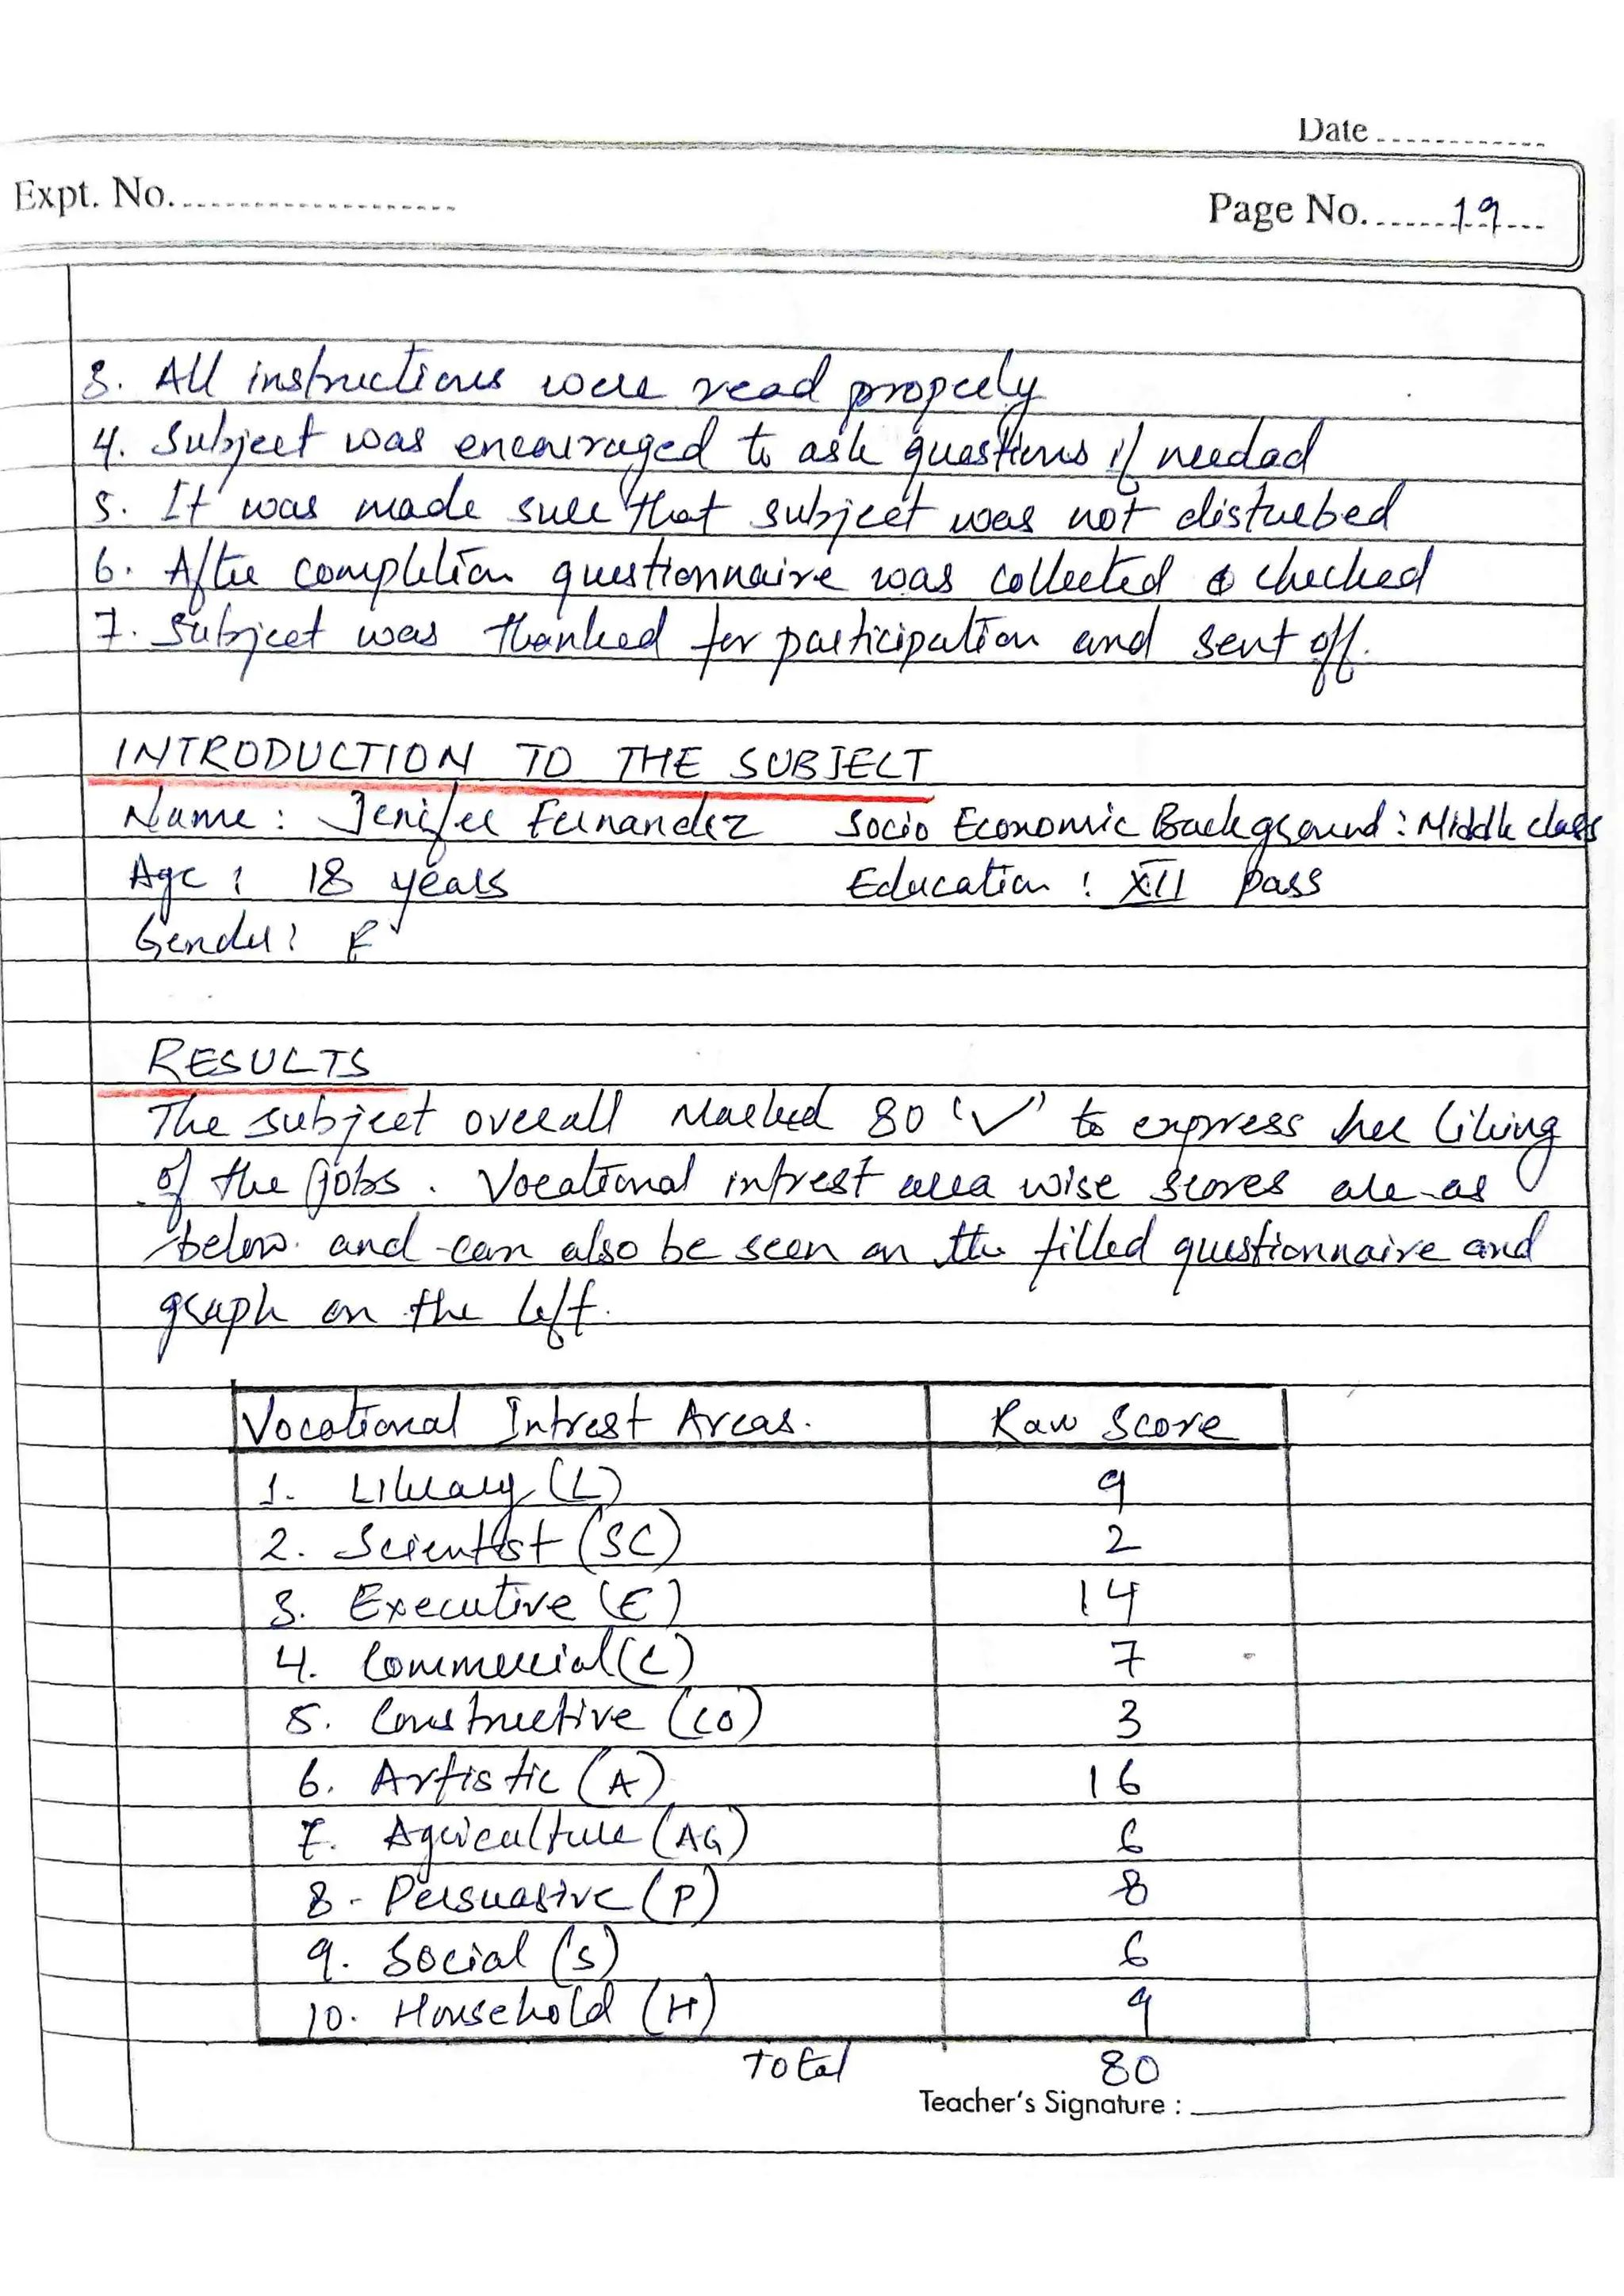 Date
Expt. No.
Page No. 19
3. All instructions were read properly
4. Subject was encouraged to ask questions if needed
5. It was made sure that subject was not disturbed
6. After completion questionnaire was collected & checked
7. Subject was thanked for participation and sent off.
INTRODUCTION TO THE SUBJECT
Name : Jenifer Fernandez Socio Economic Background : Middle class
Age : 18 years Education : XII pass
Gender : F
RESULTS
The subject overall marked 80 '✓' to express her liking
of the jobs. Vocational intrest area wise scores are as
below. and can also be seen on the filled questionnaire and
graph on the left.
Vocational Intrest Areas. Raw Score
1. Library (L) 9
2. Scientist (SC) 2
3. Executive (E) 14
4. Commercial (C) 7
5. Constructive (CO) 3
6. Artistic (A) 16
7. Agriculture (AG) 6
8. Persuasive (P) 8
9. Social (S) 6
10. Household (H) 9
Total 80
Teacher's Signature :